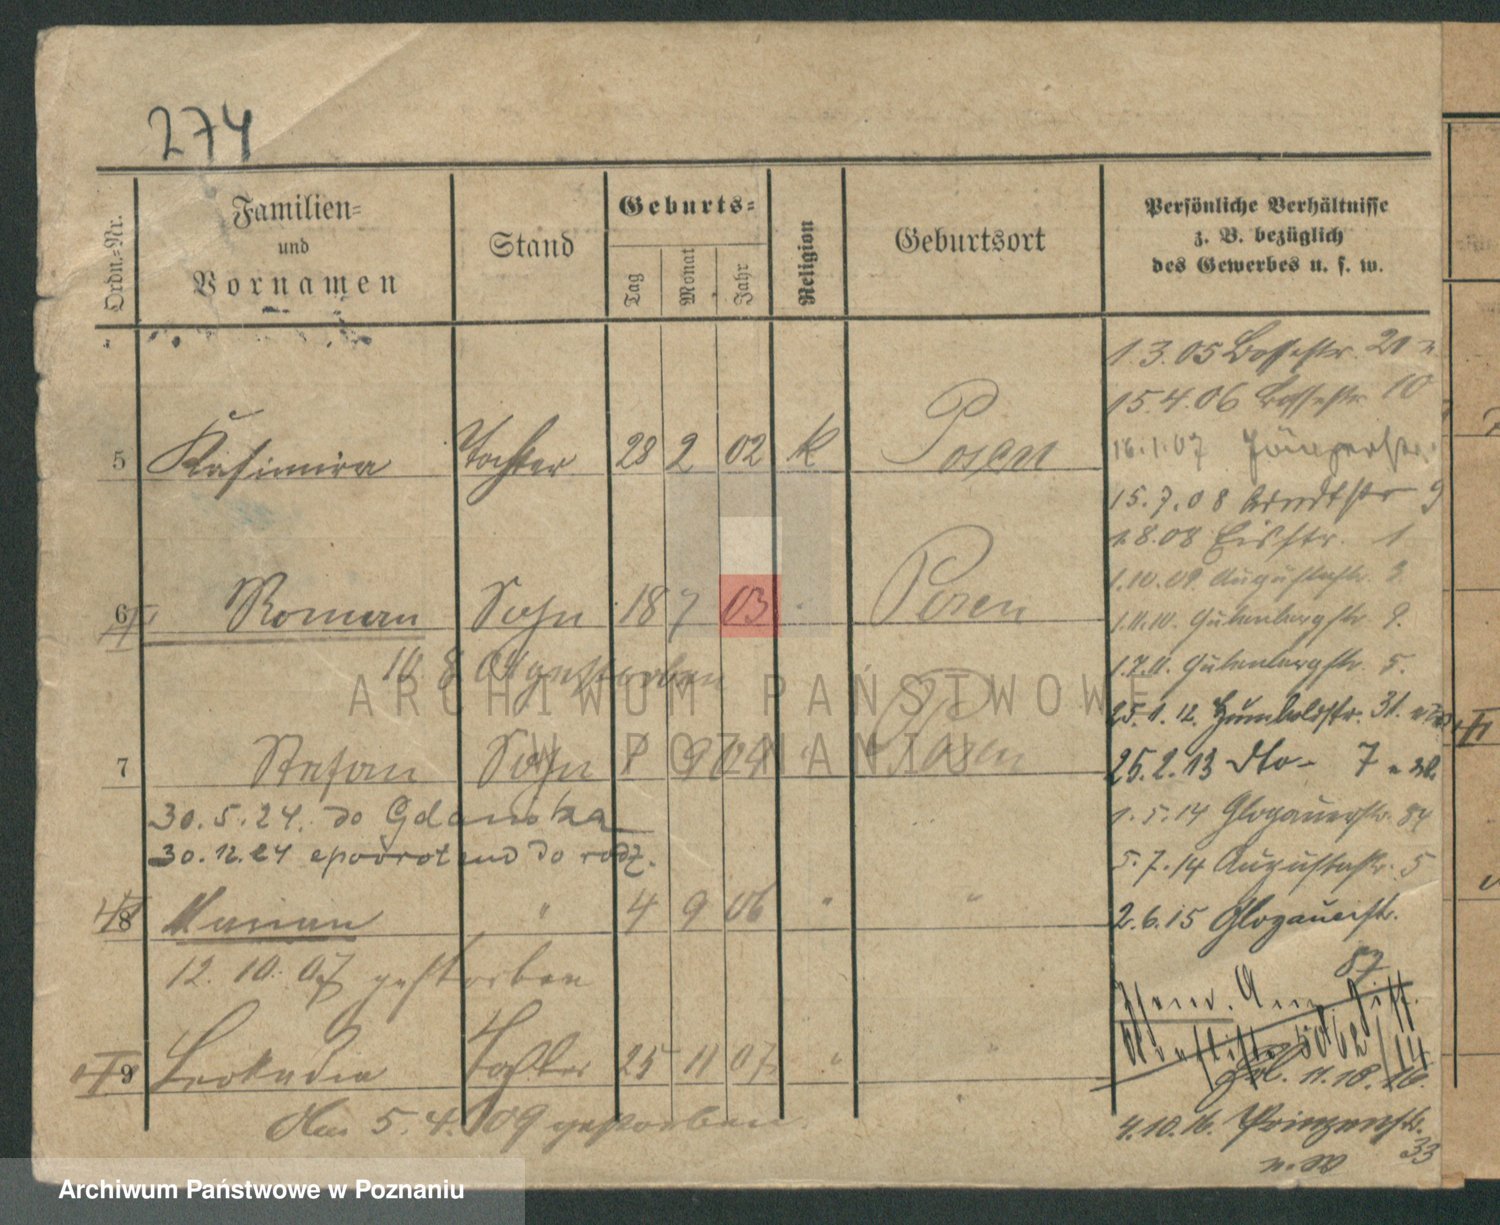 274
Ordn.-Nr.
Familien=
und
Vornamen
Stand
Geburts=
Tag
Monat
Jahr
Religion
Geburtsort
Persönliche Verhältnisse
z. B. bezüglich
des Gewerbes u. s. w.
1.3.05 Bossestr. 20
15.4.06 Bossestr. 10
5 Kasimira Tochter 28 2 02 k Posen
16.1.07
15.7.08 Arndtstr 9
1.8.08 Eisstr. 1
1.10.09 Augustastr. 3
6 Roman Sohn 18 7 03 Posen
1.11.10. Gutenbergstr. 9.
10.8.04 gestorben
1.7.11. Gutenbergstr. 5.
25.1.12. Humboldstr. 31.
7 Stefan Sohn 1 9 04 " Posen
25.2.13 dto- 7
30.5.24. do Gdańska
1.5.14 Glogauerstr. 84
30.12.24 spowrotem do rodz.
5.7.14 Augustastr. 5
8 Marian " 4 9 06 " "
2.6.15 Glogauerstr.
87
12.10.07 gestorben
9 Leokadia Tochter 25 11 07 " "
11.18.16
Am 5.4.09 gestorben
4.10.16. Prinzenstr.
33
ARCHIWUM PAŃSTWOWE
W POZNANIU
Archiwum Państwowe w Poznaniu